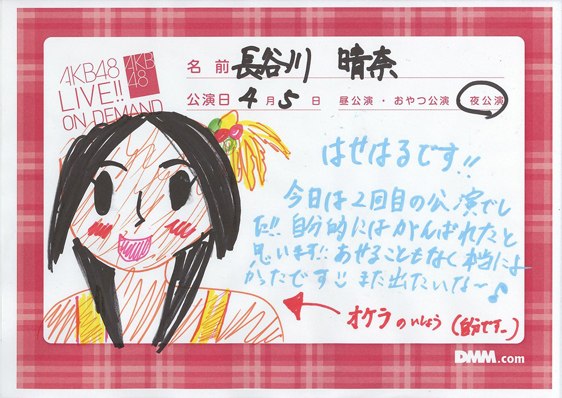 AKB48
LIVE!!
ON DEMAND
AKB
48
名前 長谷川 晴奈
公演日 4月5日 昼公演・おやつ公演 夜公演
はせはるです!!
今日は2回目の公演でし
た!! 自分的にはがんばれたと
思います!! あせることもなく本当によ
かったです!! また出たいな〜♪
オケラのいしょう (自分です。)
DMM.com